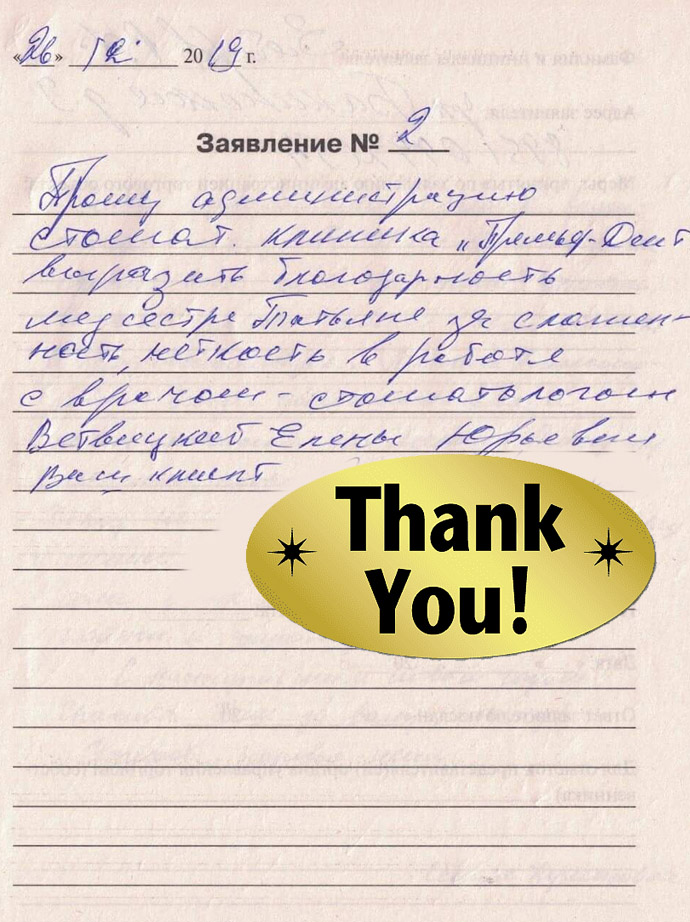 «26» 12 2019 г.
Заявление № 2
Прошу администрацию
стомат. клиника „Прельд-Дент
выразить благодарность
медсестре Татьяне за слажен-
ность, четкость в работе
с врачом-стоматологом
Ветвицкой Елены Юрьевны
Ваш клиент
Thank
You!